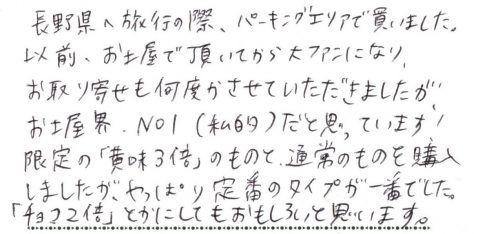 長野県へ旅行の際、パーキングエリアで買いました。
以前、お土屋で頂いてから大ファンになり、
お取り寄せも何度かさせていただきましたが、
お土屋界、NO1（私的）だと思っています！
限定の「黄味3倍」のものと、通常のものを購入
しましたが、やっぱり定番のタイプが一番でした。
「チョコ2倍」とかにしてもおもしろいと思います。